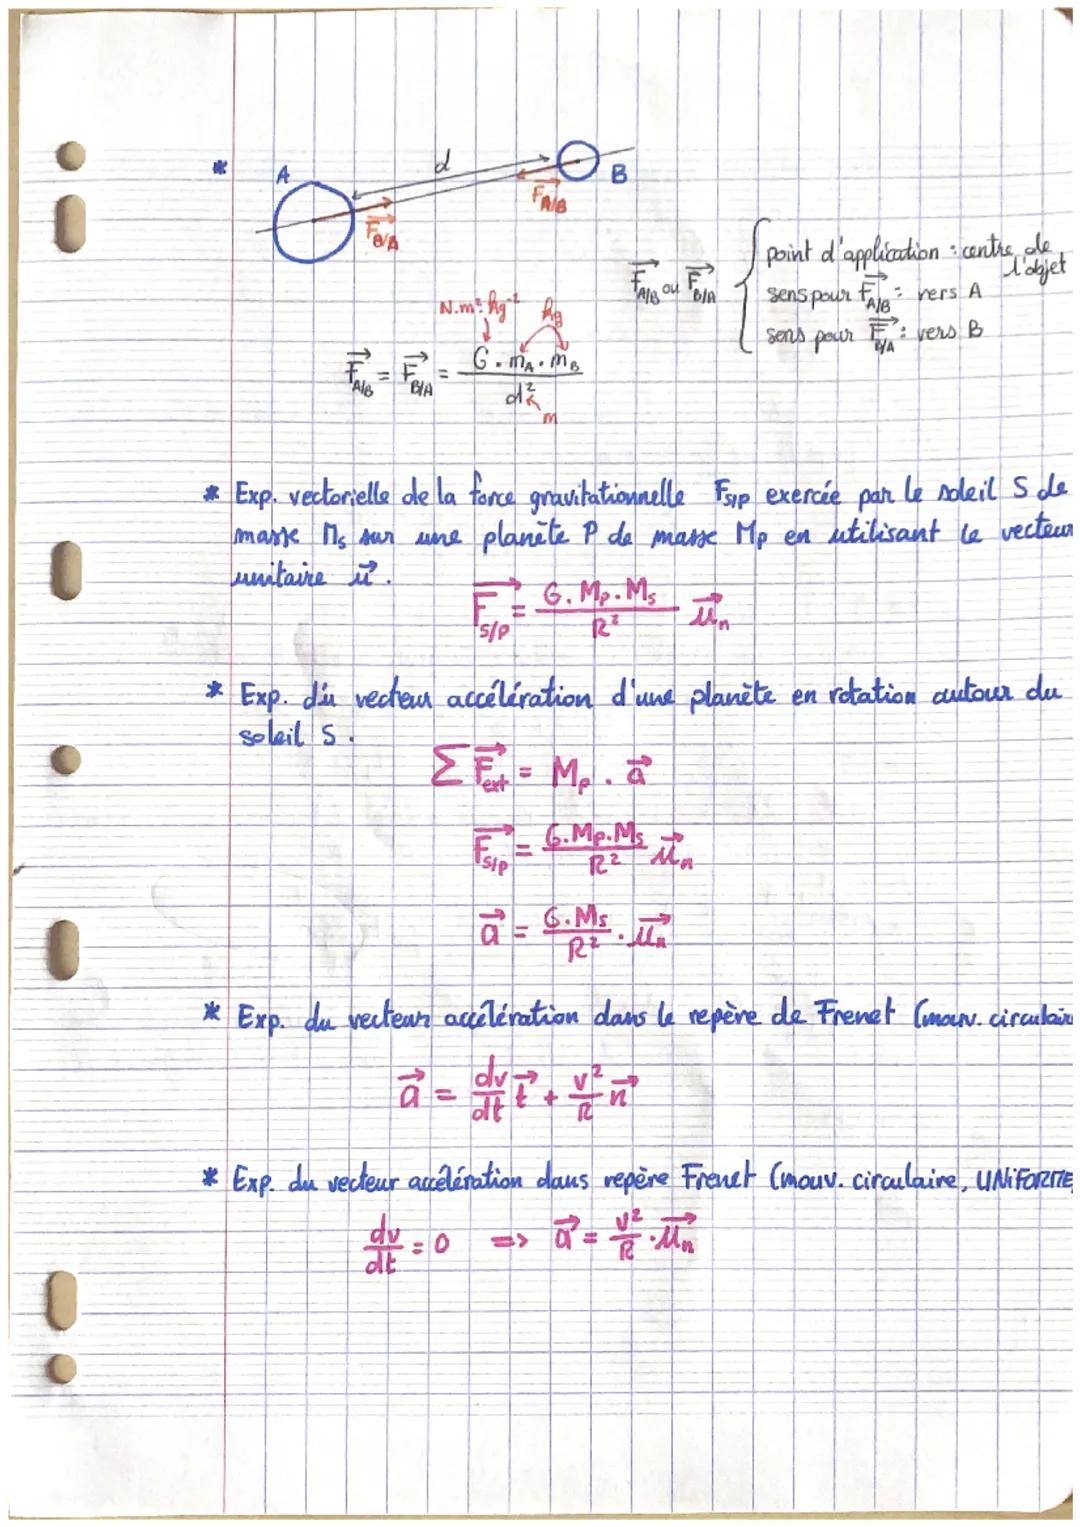 * A d B
F⃗B/A F⃗A/B
F⃗A/B ou F⃗B/A { point d'application : centre de l'objet
sens pour F⃗A/B : vers A
sens pour F⃗B/A : vers B
N.m².kg⁻² kg
F⃗A/B = F⃗B/A = G . mA . mB / d²
m
* Exp. vectorielle de la force gravitationnelle FS/P exercée par le soleil S de
masse Ms sur une planète P de masse Mp en utilisant le vecteur
unitaire u⃗.
F⃗S/P = G. Mp. Ms / R² u⃗n
* Exp. du vecteur accélération d'une planète en rotation autour du
soleil S.
Σ F⃗ext = Mp . a⃗
F⃗S/P = G.Mp.Ms / R² u⃗n
a⃗ = G.Ms / R² . u⃗n
* Exp. du vecteur accélération dans le repère de Frenet (mouv. circulaire
a⃗ = dv/dt t⃗ + v²/R n⃗
* Exp. du vecteur accélération dans repère Frenet (mouv. circulaire, UNIFORME
dv/dt = 0 => a⃗ = v²/R . u⃗n